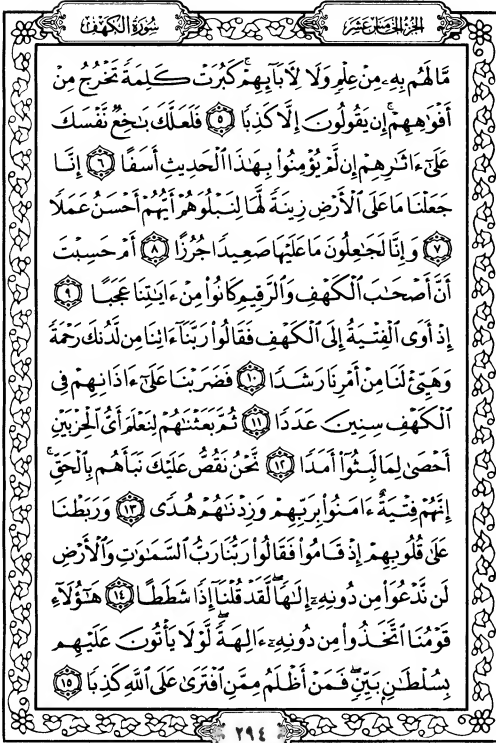 الجزء الخامس عشر
سورة الكهف
مَّا لَهُم بِهِۦ مِنْ عِلْمٍ وَلَا لِأَبَآئِهِمْ ۚ كَبُرَتْ كَلِمَةً تَخْرُجُ مِنْ
أَفْوَٰهِهِمْ ۚ إِن يَقُولُونَ إِلَّا كَذِبًا ٥ فَلَعَلَّكَ بَٰخِعٌ نَّفْسَكَ
عَلَىٰٓ ءَاثَٰرِهِمْ إِن لَّمْ يُؤْمِنُوا۟ بِهَٰذَا ٱلْحَدِيثِ أَسَفًا ٦ إِنَّا
جَعَلْنَا مَا عَلَى ٱلْأَرْضِ زِينَةً لَّهَا لِنَبْلُوَهُمْ أَيُّهُمْ أَحْسَنُ عَمَلًا
٧ وَإِنَّا لَجَٰعِلُونَ مَا عَلَيْهَا صَعِيدًا جُرُزًا ٨ أَمْ حَسِبْتَ
أَنَّ أَصْحَٰبَ ٱلْكَهْفِ وَٱلرَّقِيمِ كَانُوا۟ مِنْ ءَايَٰتِنَا عَجَبًا ٩
إِذْ أَوَى ٱلْفِتْيَةُ إِلَى ٱلْكَهْفِ فَقَالُوا۟ رَبَّنَآ ءَاتِنَا مِن لَّدُنكَ رَحْمَةً
وَهَيِّئْ لَنَا مِنْ أَمْرِنَا رَشَدًا ١٠ فَضَرَبْنَا عَلَىٰٓ ءَاذَانِهِمْ فِى
ٱلْكَهْفِ سِنِينَ عَدَدًا ١١ ثُمَّ بَعَثْنَٰهُمْ لِنَعْلَمَ أَىُّ ٱلْحِزْبَيْنِ
أَحْصَىٰ لِمَا لَبِثُوٓا۟ أَمَدًا ١٢ نَّحْنُ نَقُصُّ عَلَيْكَ نَبَأَهُم بِٱلْحَقِّ ۚ
إِنَّهُمْ فِتْيَةٌ ءَامَنُوا۟ بِرَبِّهِمْ وَزِدْنَٰهُمْ هُدًى ١٣ وَرَبَطْنَا
عَلَىٰ قُلُوبِهِمْ إِذْ قَامُوا۟ فَقَالُوا۟ رَبُّنَا رَبُّ ٱلسَّمَٰوَٰتِ وَٱلْأَرْضِ
لَن نَّدْعُوَا۟ مِن دُونِهِۦٓ إِلَٰهًا ۖ لَّقَدْ قُلْنَآ إِذًا شَطَطًا ١٤ هَٰٓؤُلَآءِ
قَوْمُنَا ٱتَّخَذُوا۟ مِن دُونِهِۦٓ ءَالِهَةً ۖ لَّوْلَا يَأْتُونَ عَلَيْهِم
بِسُلْطَٰنٍۭ بَيِّنٍ ۖ فَمَنْ أَظْلَمُ مِمَّنِ ٱفْتَرَىٰ عَلَى ٱللَّهِ كَذِبًا ١٥
٢٩٤